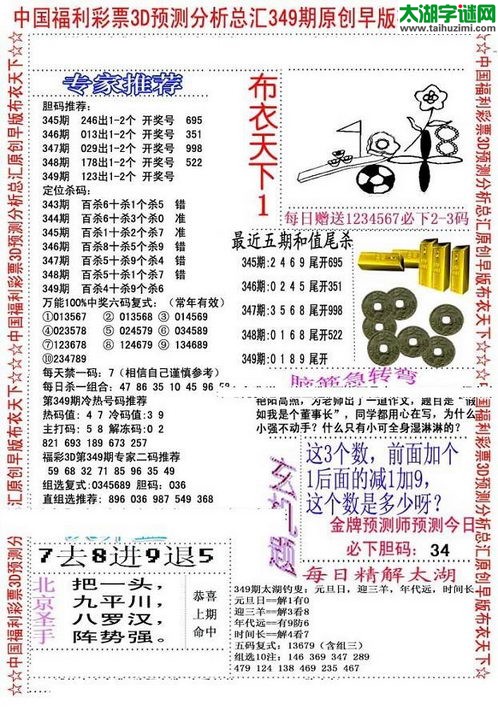 中国福利彩票3D预测分析总汇349期原创早版
太湖字谜网
www.taihuzimi.com
☆☆中国福利彩票3D预测分析总汇原创早版布衣天下☆☆
专家推荐
胆码推荐:
345期 246出1-2个 开奖号 695
346期 013出1-2个 开奖号 351
347期 029出1-2个 开奖号 998
348期 178出1-2个 开奖号 522
349期 123出1-2个 开奖号
定位杀码:
343期 百杀6十杀1个杀5 错
344期 百杀0十杀3个杀9 准
345期 百杀3十杀4个杀0 准
346期 百杀1十杀4个杀7 准
347期 百杀1十杀0个杀7 准
348期 百杀7十杀4个杀3 准
349期 百杀4十杀9个杀6
万能100%中奖六码复式: (常年有效)
①013567 ② 013568 ③ 014569
④023578 ⑤ 024579 ⑥ 034689
⑦123678 ⑧ 124679 ⑨ 134689
⑩234789
每天禁一码: 7 (相信自己谨慎参考)
每日杀一组合: 47 86 35 10 45 96
第349期冷热号码推荐
热码值: 4 7 冷码值: 3 9
主打码: 5 8 解冻码: 0 2
821 693 189 763 257
福彩3D第349期专家二码推荐
59 68 32 71 85 96 35 49
组选复式:0345689 胆码: 036
直组选推荐: 896 036 987 549 368
布衣天下1
每日赠送1234567必下2-3码
最近五期和值尾杀
345期:2 4 6 9 尾开695
346期:0 2 4 5 尾开351
347期:3 5 6 8 尾开998
348期:0 1 6 8 尾开522
349期:0 1 8 9 尾开
脑筋急转弯
艳阳高照,为老师出了一道作文,题目是“假
如我是个董事长”,同学都用心在写,为什么
小强不动手?什么只有小可全身湿淋淋的?
这3个数,前面加个
1后面的减1加9,
这个数是多少呢?
金牌预测师预测今日
必下胆码: 34
7去8进9退5
北京圣手
把一头,
九平川,
八罗汉,
阵势强。
恭喜
上期
命中
每日精解太湖
349期太湖钓叟:元旦日,迎三羊,年代远,时间长
元旦日==解1有0
迎三羊==解3看8
年代远==有9防6
时间长==解4看7
五码复式:13679(含组三)
组选10注: 146 369 347 289
479 124 138 469 235 367